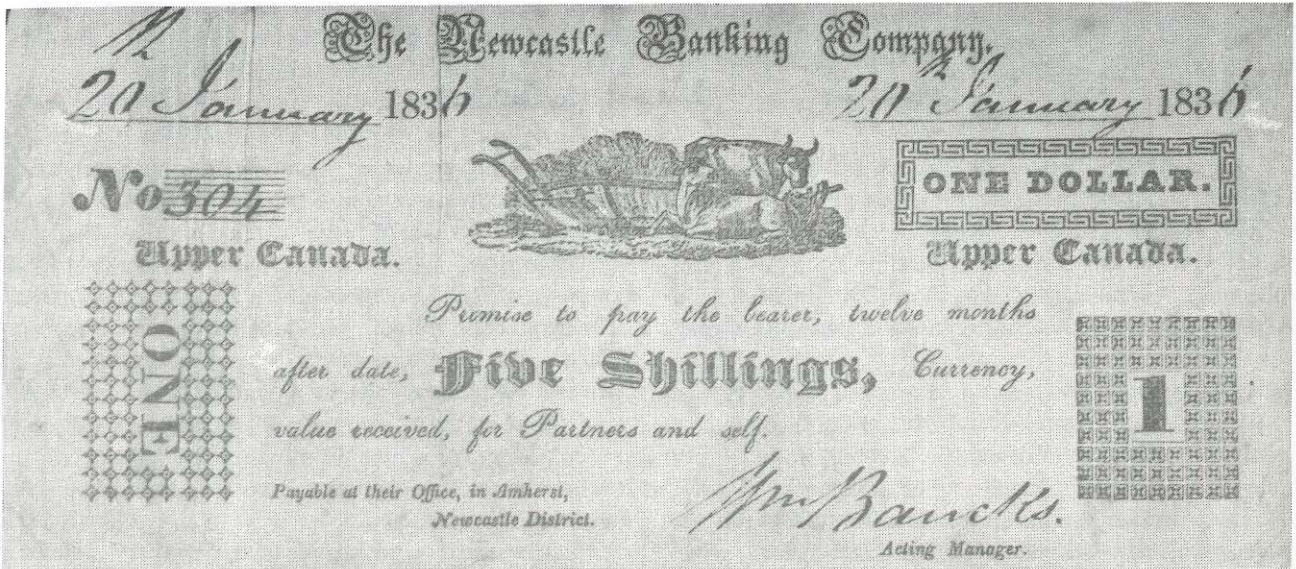 The Newcastle Banking Company.
20 January 1836
20th January 1836
No 304
ONE DOLLAR.
Upper Canada.
Upper Canada.
ONE
Promise to pay the bearer, twelve months
after date, Five Shillings, Currency,
value received, for Partners and self.
1
Payable at their Office, in Amherst,
Newcastle District.
Wm Bancks.
Acting Manager.